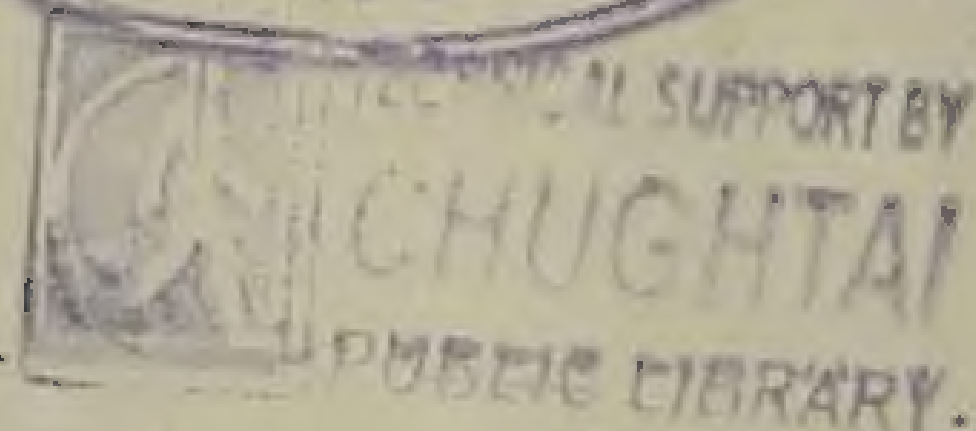 SUPPORT BY
CHUGHTAI
PUBLIC LIBRARY.